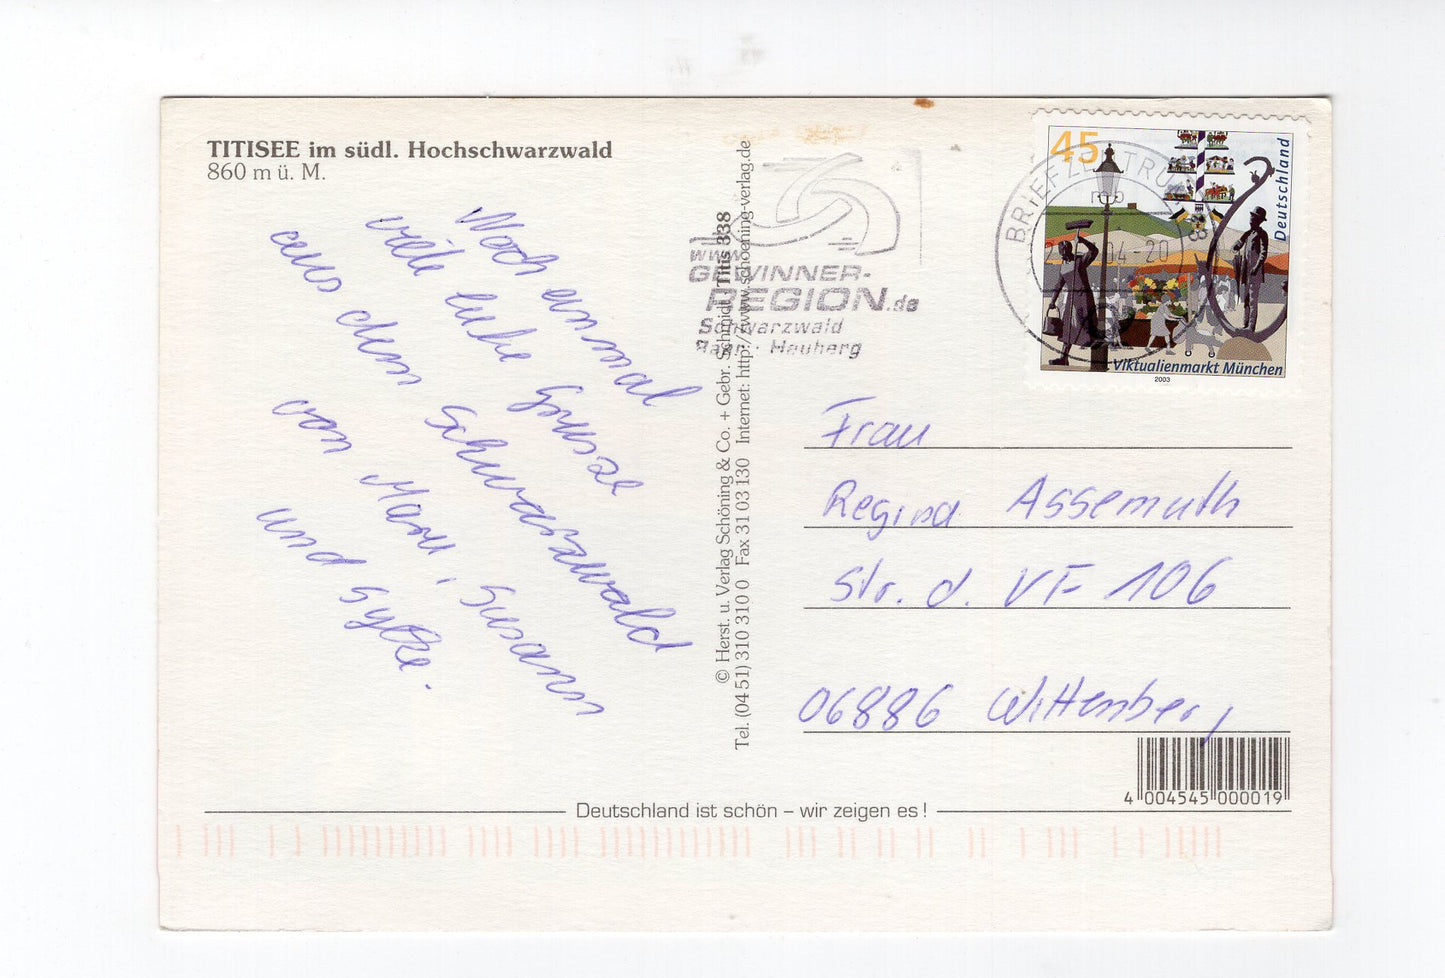 TITISEE im südl. Hochschwarzwald
860 m ü. M.
Noch einmal
viele liebe Grüsse
aus dem Schwarzwald
von Mary, Susann
und Sylke.
© Herst. u. Verlag Schöning & Co. + Gebr. Schmidt Titis 338
Tel. (04 51) 310 310 0 Fax 31 03 130 Internet: http://www.schoening-verlag.de
www.
GEWINNER-
REGION.de
Schwarzwald
Baar · Heuberg
BRIEFZENTRUM
04-20
45
Deutschland
Viktualienmarkt München
2003
Frau
Regina Assemuth
Str. d. VF 106
06886 Wittenberg
4 004545 000019
Deutschland ist schön – wir zeigen es !